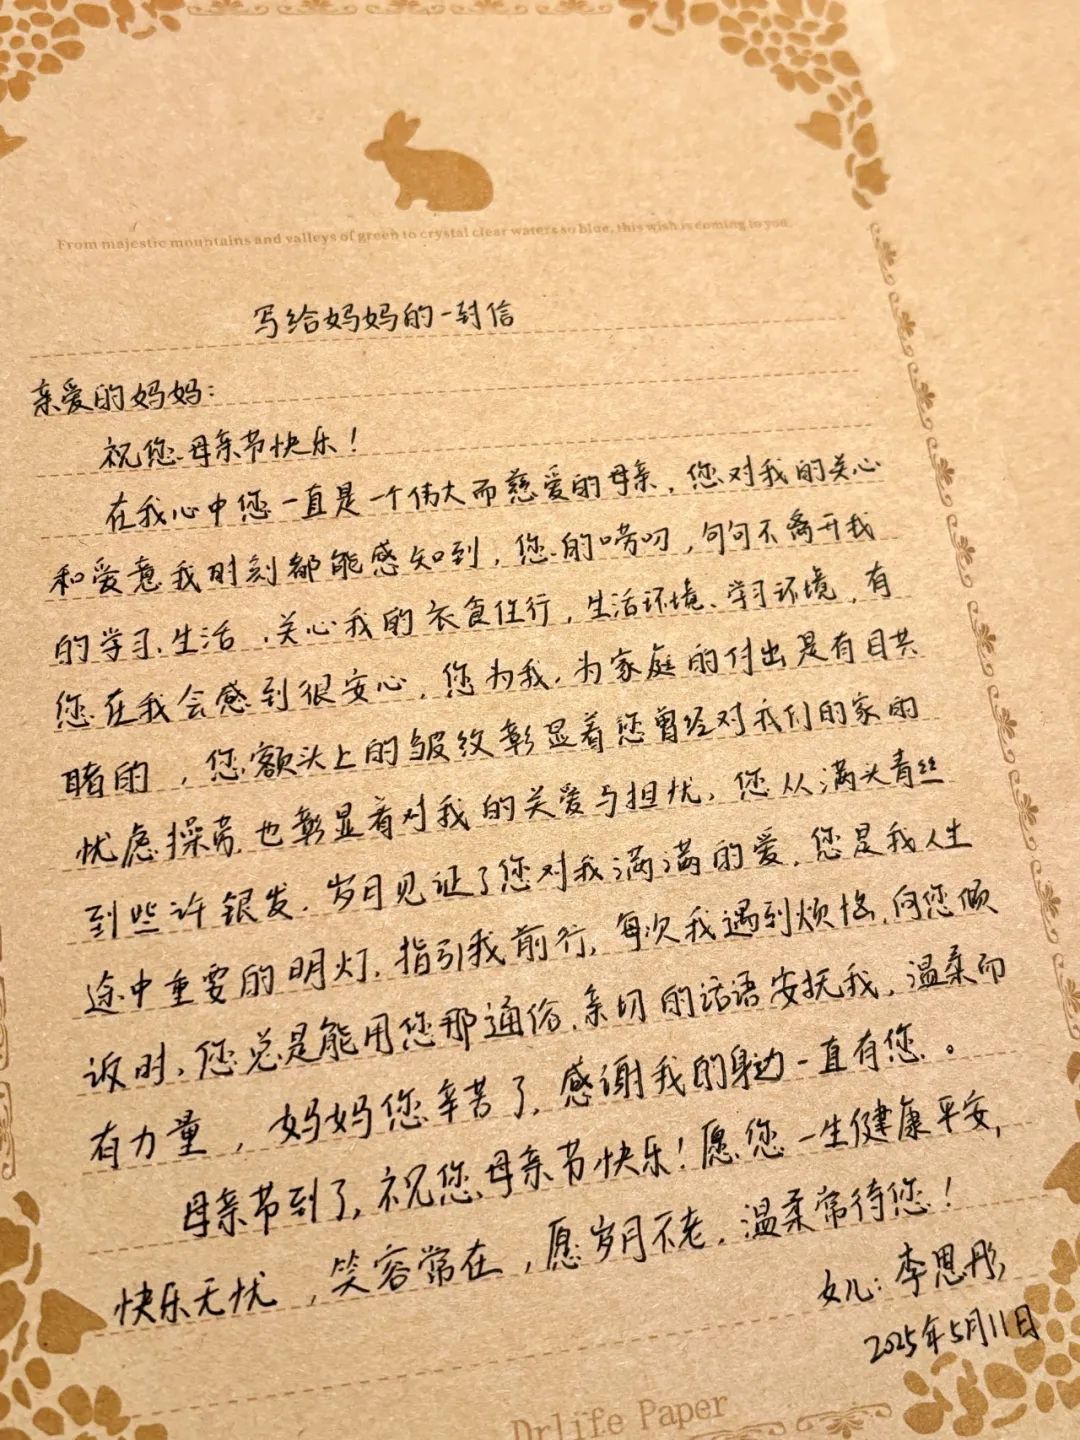 From majestic mountains and valleys of green to crystal clear waters so blue, this wish is coming to you.
写给妈妈的一封信
亲爱的妈妈：
祝您母亲节快乐！
在我心中您一直是一个伟大而慈爱的母亲，您对我的关心
和爱意我时刻都能感知到，您的唠叨，句句不离开我
的学习、生活，关心我的衣食住行，生活环境、学习环境，有
您在我会感到很安心，您为我、为家庭的付出是有目共
睹的，您额头上的皱纹彰显着您曾经对我们的家的
忧虑操劳，也彰显着对我的关爱与担忧，您从满头青丝
到些许银发，岁月见证了您对我满满的爱，您是我人生
途中重要的明灯，指引我前行，每次我遇到烦恼，向您倾
诉时，您总是能用您那通俗、亲切的话语安抚我，温柔而
有力量，妈妈您辛苦了，感谢我的身边一直有您。
母亲节到了，祝您母亲节快乐！愿您一生健康平安，
快乐无忧，笑容常在，愿岁月不老，温柔常待您！
女儿：李思彤
2025年5月11日
Drlife Paper